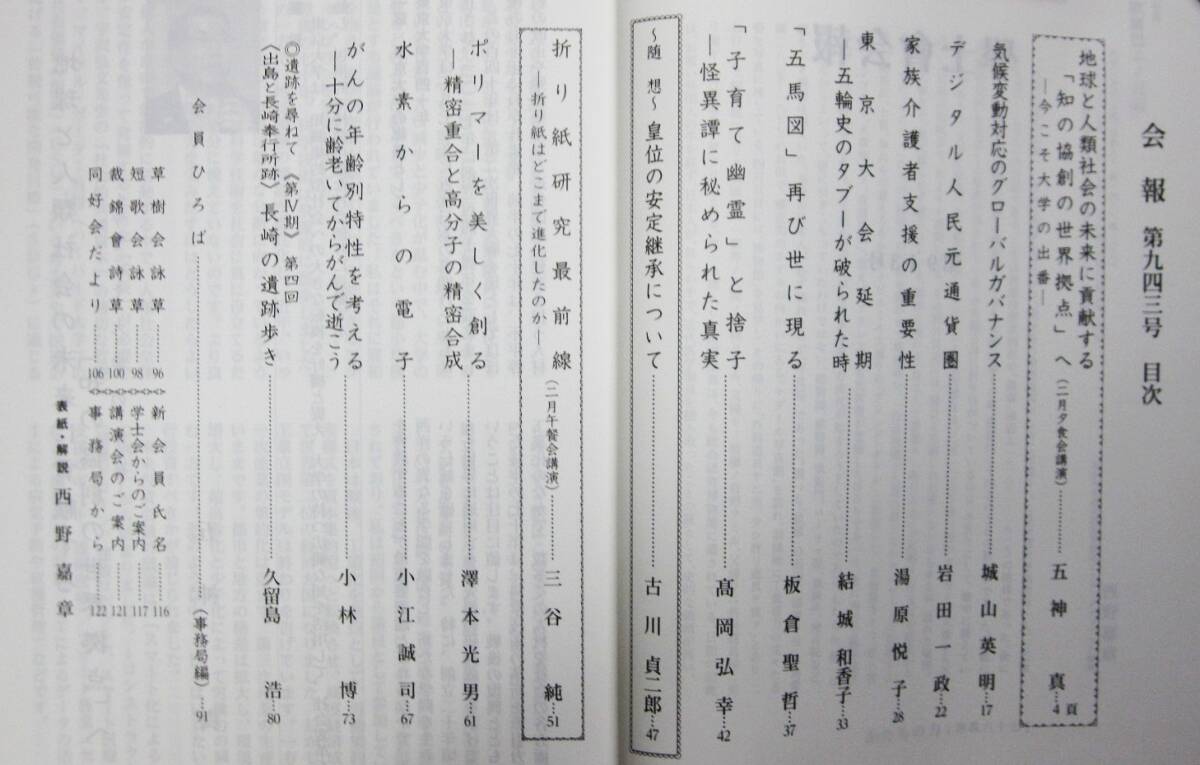 会報 第九四三号 目次
地球と人類社会の未来に貢献する
「知の協創の世界拠点」へ(二月夕食会講演)……五神 真…4頁
―今こそ大学の出番―
気候変動対応のグローバルガバナンス……城山英明…17
デジタル人民元通貨圏……岩田一政…22
家族介護者支援の重要性……湯原悦子…28
東京大会延期
―五輪史のタブーが破られた時……結城和香子…33
「五馬図」再び世に現る……板倉聖哲…37
「子育て幽霊」と捨子
―怪異譚に秘められた真実……髙岡弘幸…42
～随想～皇位の安定継承について……古川貞二郎…47
折り紙研究最前線(二月午餐会講演)……三谷 純…51
―折り紙はどこまで進化したのか―
ポリマーを美しく創る
―精密重合と高分子の精密合成……澤本光男…61
水素からの電子……小江誠司…67
がんの年齢別特性を考える
―十分に齢老いてからがんで逝こう……小林 博…73
◎遺跡を尋ねて《第Ⅳ期》第四回
〈出島と長崎奉行所跡〉長崎の遺跡歩き……久留島 浩…80
会員ひろば……(事務局編)…91
草樹会詠草……96 新会員氏名……116
短歌会詠草……98 学士会からのご案内……117
裁錦會詩草……100 講演会のご案内……121
同好会だより……106 事務局から……122
表紙・解説 西野嘉章